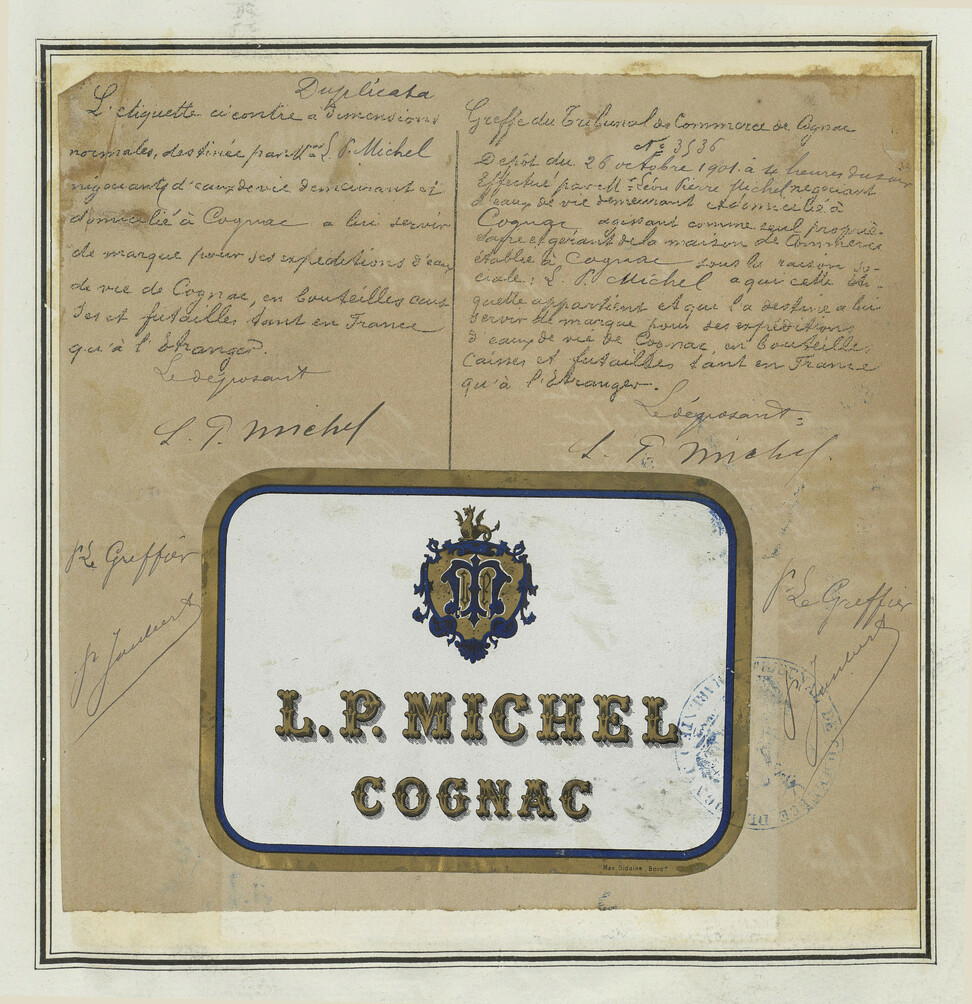 Duplicata
L'etiquette ci contre à dimensions
normales, destinée par Mr L. P. Michel
négociant d'eaux de vie demeurant et
domicilié à Cognac a lui servir
de marque pour ses expéditions d'eaux
de vie de Cognac, en bouteilles cais
ses et futailles tant en France
qu'à l'Etranger.
Le déposant
L. P. Michel
Pr Le Greffier
Greffe du Tribunal de Commerce de Cognac
No 3536
Depôt du 26 octobre 1901 à 4 heures du soir
Effectué par Mr Léon Pierre Michel negociant
d'eaux de vie demeurant et domicilié à
Cognac agissant comme seul proprié-
taire et gérant de la maison de Commerce
établie à Cognac sous la raison so-
ciale: L. P. Michel a qui cette éti-
quette appartient et que l'a destine a lui
servir de marque pour ses expéditions
d'eaux de vie de Cognac, en bouteilles,
caisses et futailles tant en France
qu'à l'Etranger.
Le déposant:
L. P. Michel.
Pr Le Greffier
L.P. MICHEL
COGNAC